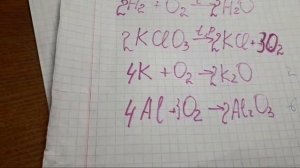 2H₂ + O₂ → 2H₂O
2KClO₃ → 2KCl+3O₂
4K + O₂→2K₂O
4Al+3O₂→2Al₂O₃